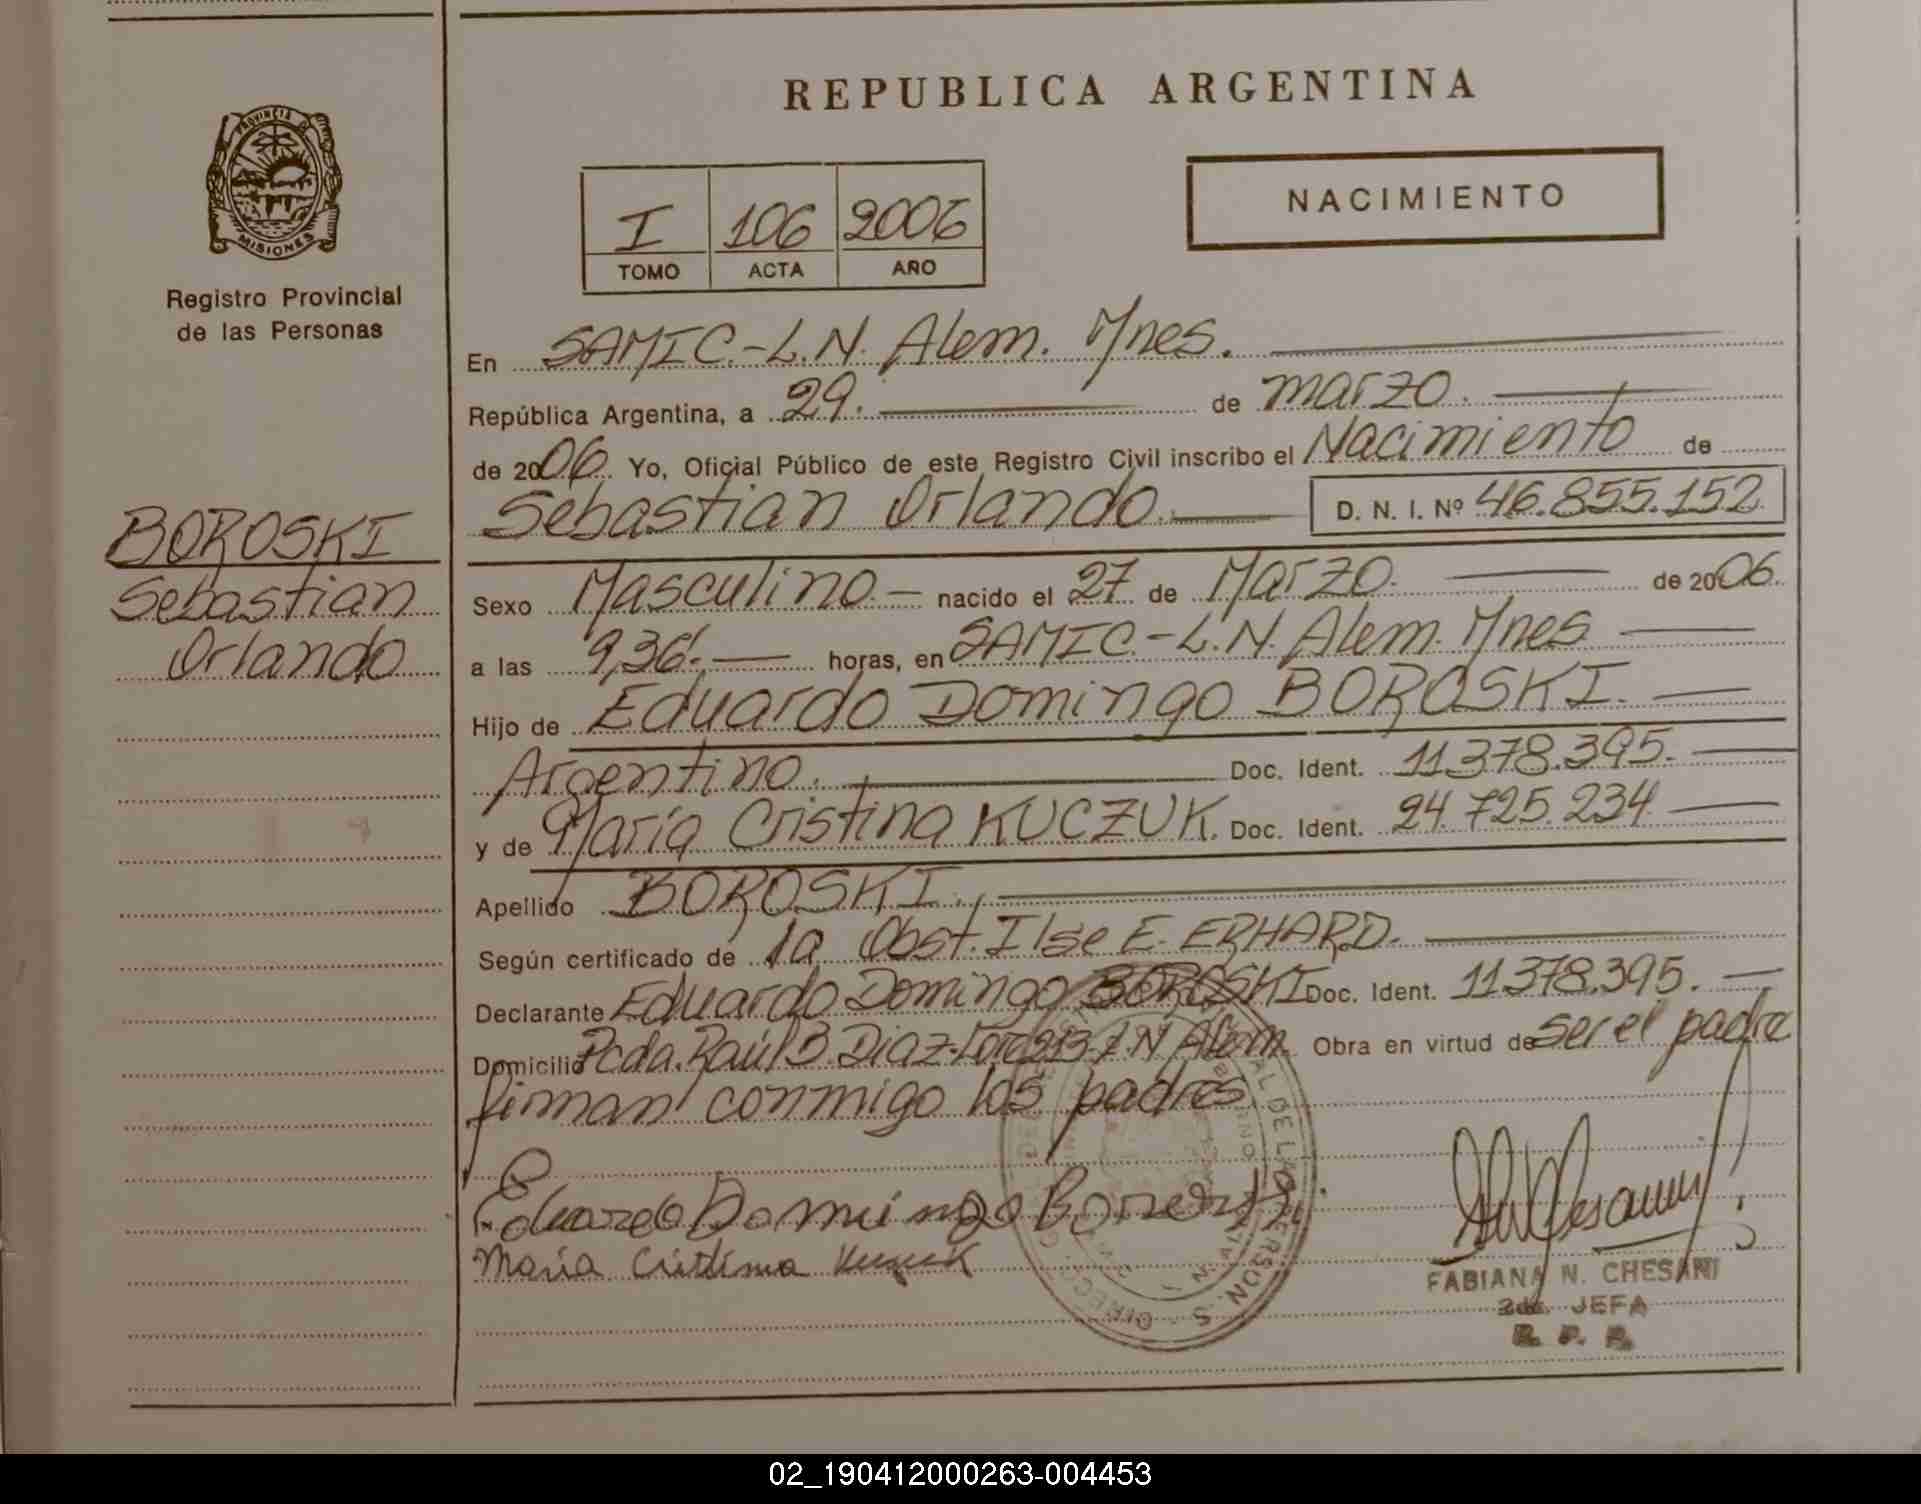 REPUBLICA ARGENTINA
PROVINCIA DE
MISIONES
Registro Provincial
de las Personas
I 106 2006
TOMO ACTA AÑO
NACIMIENTO
En SAMIC.-L.N. Alem. Mnes.
República Argentina, a 29. de marzo.
de 2006. Yo, Oficial Público de este Registro Civil inscribo el Nacimiento de
Sebastian Orlando. D. N. I. Nº 46.855.152
BOROSKI
Sebastian
Orlando
Sexo Masculino.- nacido el 27 de Marzo. de 2006.
a las 9,36'.- horas, en SAMIC.-L.N. Alem. Mnes
Hijo de Eduardo Domingo BOROSKI.
Argentino. Doc. Ident. 11.378.395.
y de María Cristina KUCZUK. Doc. Ident. 24.725.234
Apellido BOROSKI.
Según certificado de la Obst. Ilse E. ERHARD.
Declarante Eduardo Domingo BOROSKI Doc. Ident. 11.378.395.
Domicilio Pcda. Raúl B. Diaz- L.N Alem. Obra en virtud de ser el padre
firman conmigo los padres
Eduardo Domingo
María Cristina Kuczuk
FABIANA N. CHESANI
JEFA
R. P. P.
02_190412000263-004453